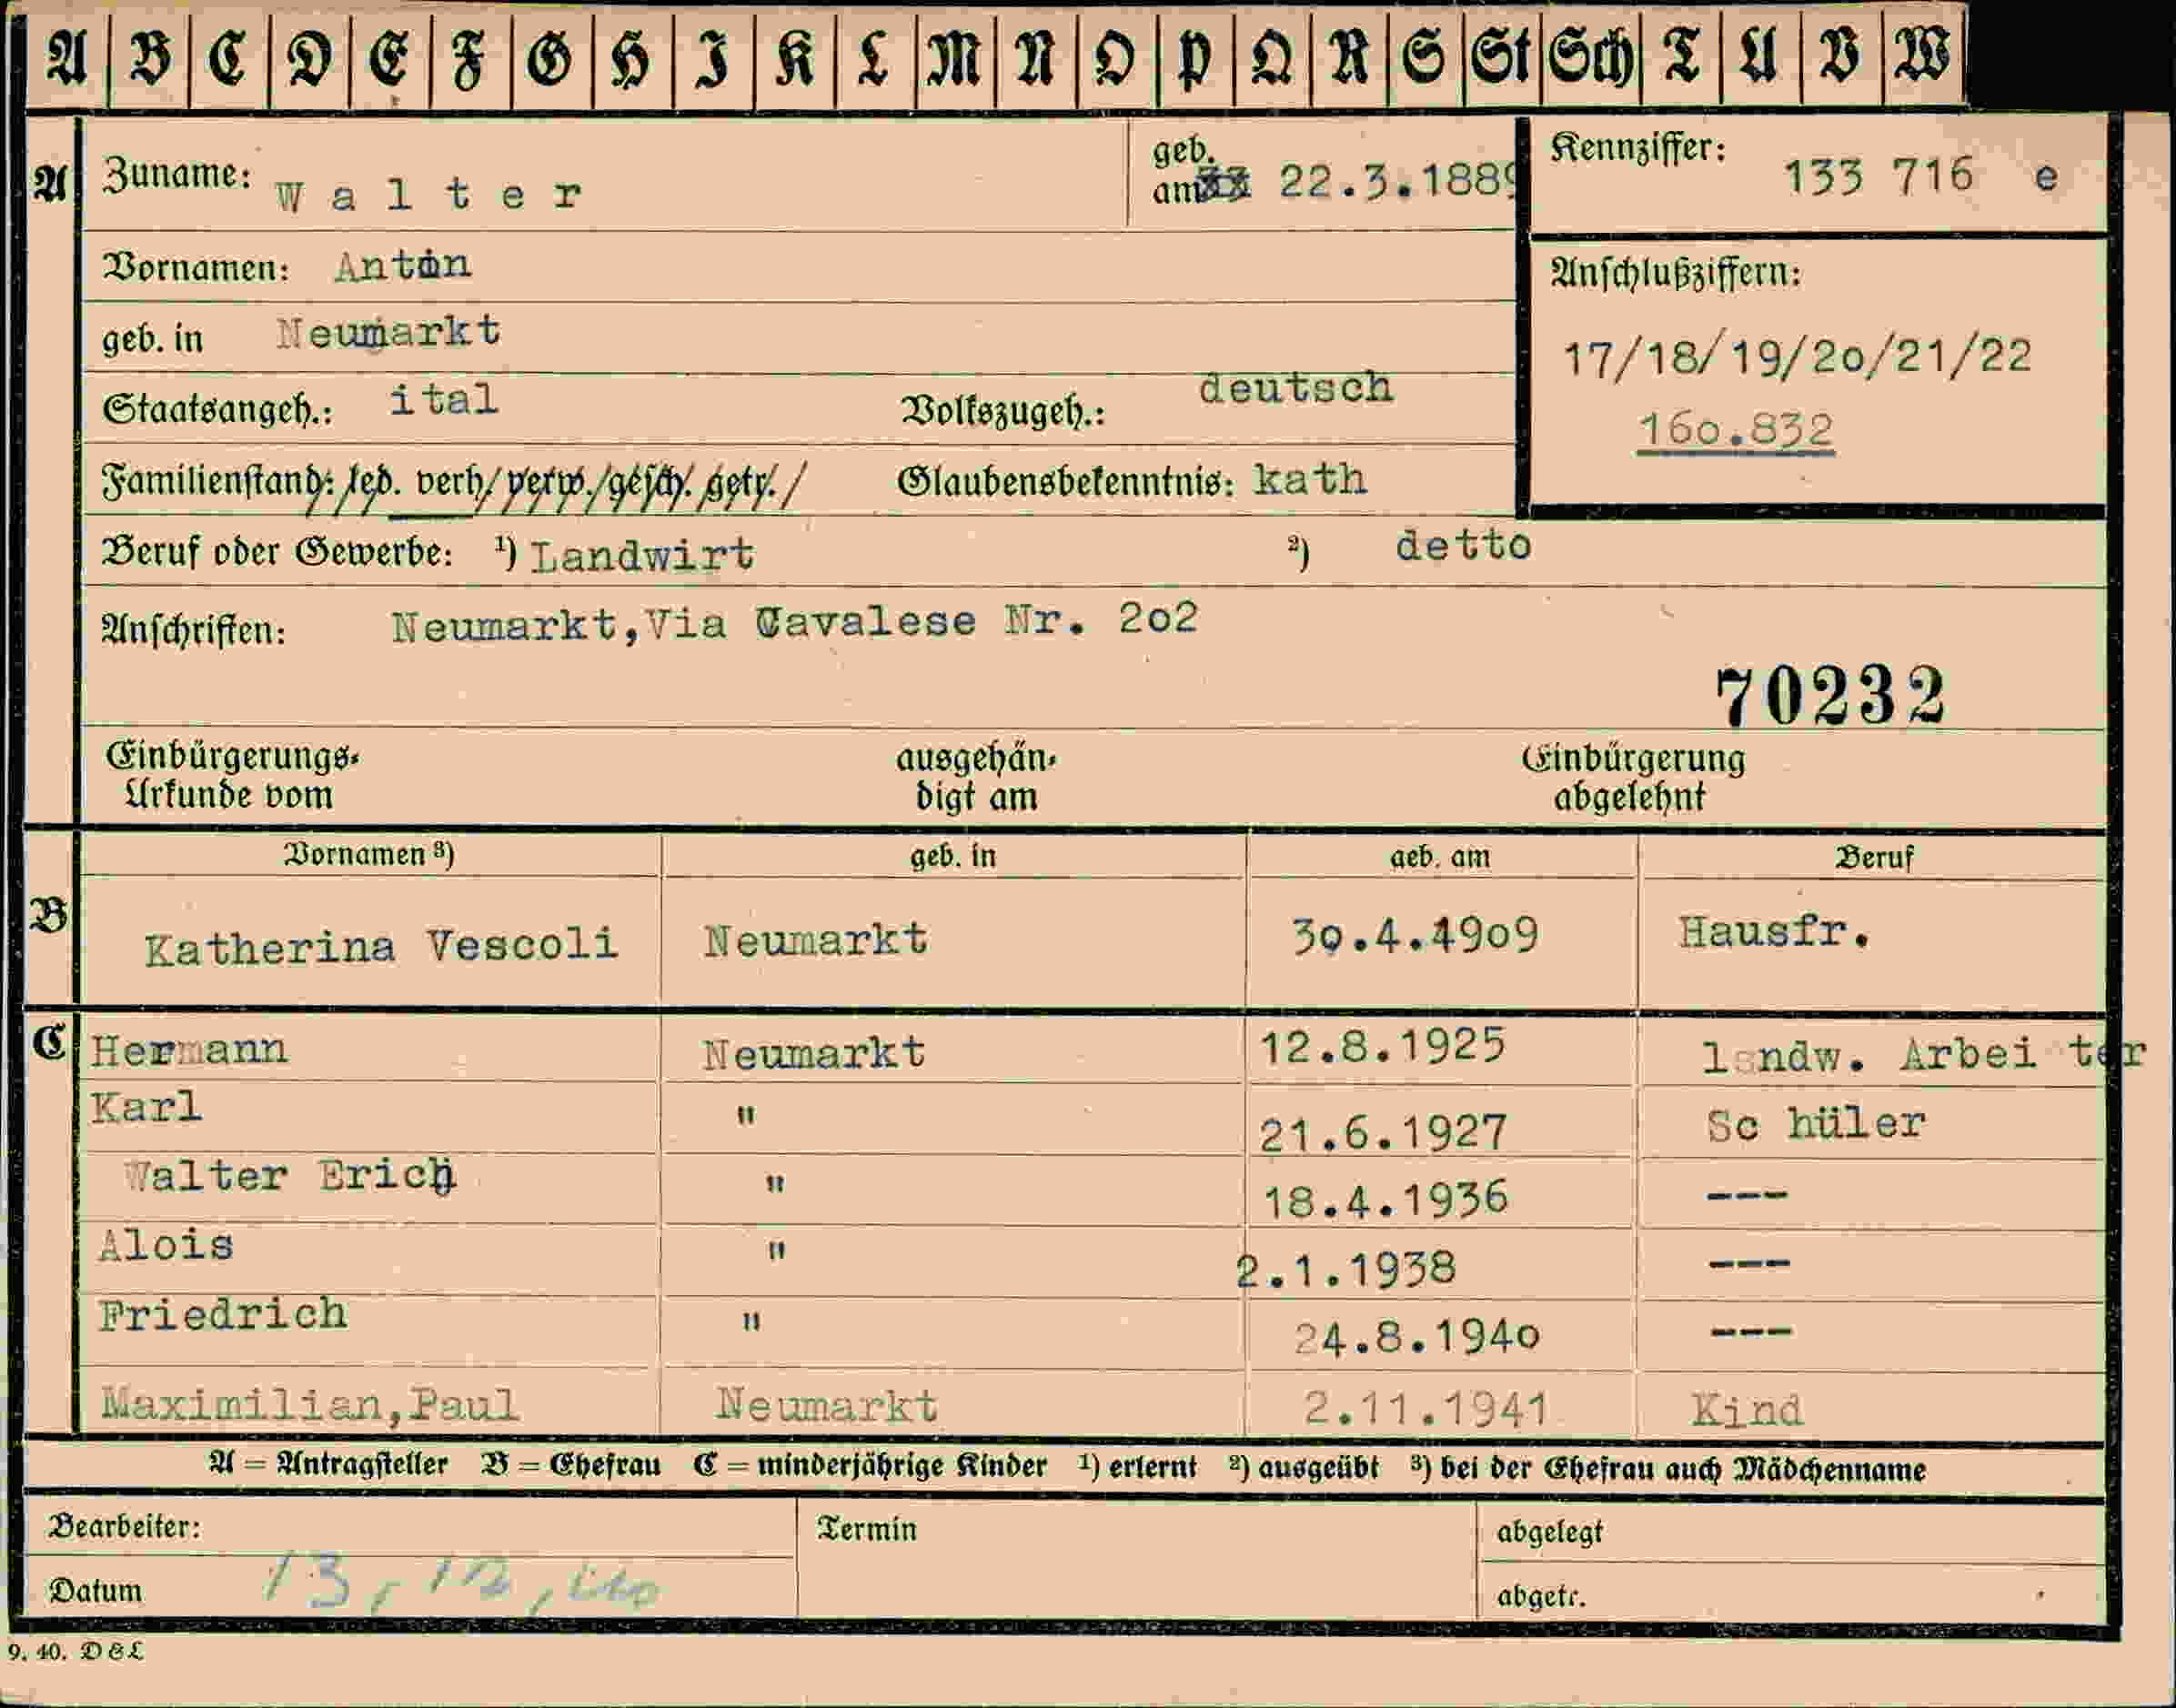 A B C D E F G H I K L M N O P Q R S St Sch T U V W
A Zuname: Walter geb. am 22.3.1889 Kennziffer: 133 716 e
Vornamen: Anton Anschlußziffern:
geb. in Neumarkt 17/18/19/2o/21/22
Staatsangeh.: ital Volkszugeh.: deutsch 16o.832
Familienstand: led. verh/verw./gesch. getr./ Glaubensbekenntnis: kath
Beruf oder Gewerbe: ¹) Landwirt ²) detto
Anschriften: Neumarkt,Via Cavalese Nr. 2o2
70232
Einbürgerungs- ausgehän- Einbürgerung
Urkunde vom digt am abgelehnt
Vornamen ³) geb. in geb. am Beruf
B Katherina Vescoli Neumarkt 3o.4.49o9 Hausfr.
C Hermann Neumarkt 12.8.1925 landw. Arbei ter
Karl " 21.6.1927 Sc hüler
Walter Erich " 18.4.1936 ---
Alois " 2.1.1938 ---
Friedrich " 24.8.194o ---
Maximilian,Paul Neumarkt 2.11.1941 Kind
A = Antragsteller B = Ehefrau C = minderjährige Kinder ¹) erlernt ²) ausgeübt ³) bei der Ehefrau auch Mädchenname
Bearbeiter: Termin abgelegt
Datum 13, 12, abgetr.
9. 40. D&L